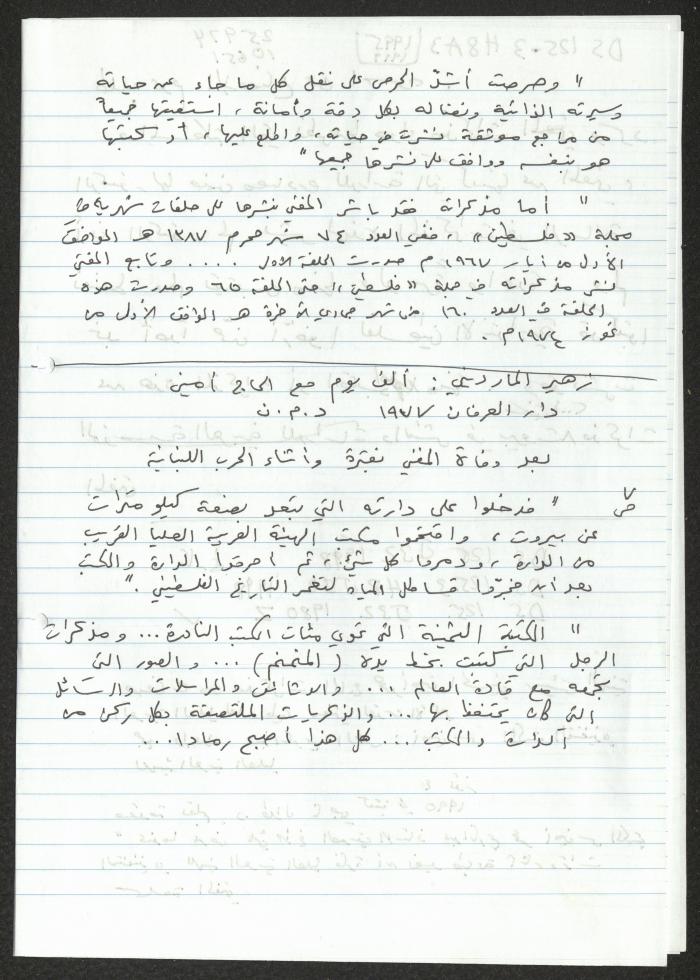 " وحرصت أشدّ الحرص على نقل كل ما جاء عن حياته
وسيرته الذاتية ونضاله بكل دقة وأمانة، استقيتها جميعاً
من مراجع موثقة نشرت في حياته، واطلع عليها، أو كتبها
هو بنفسه ووافق على نشرها جميعها "
" أما مذكراته فقد باشر المفتي بنشرها على حلقات شهرية في
مجلة «فلسطين»، ففي العدد ٧٤ شهر محرم ١٣٨٧ هـ الموافق
الأول من أيار ١٩٦٧ م صدرت الحلقة الأولى .... وتابع المفتي
نشر مذكراته في مجلة «فلسطين» حتى الحلقة ٦٥ وصدرت هذه
الحلقة في العدد ١٦٠ من شهر جمادي الآخرة هـ الموافق الأول من
تموز ١٩٧٤م.
زهير المارديني: ألف يوم مع الحاج أمين
دار العرفان ١٩٧٧ د.م.ن
بعد وفاة المفتي بفترة وأثناء الحرب اللبنانية
ص ٧ " فدخلوا على دارته التي تبعد بضعة كيلو مترات
عن بيروت، واقتحموا مكتب الهيئة العربية العليا القريب
من الدارة، ودمروا كل شيء، ثم أحرقوا الدارة والمكتب
بعد أن فجّروا قساطل المياه لتغمر التاريخ الفلسطيني."
" المكتبة الثمينة التي تحوي مئات الكتب النادرة... ومذكرات
الرجل التي كتبت بخط يده (المنمنم)... والصور التي
تجمعه مع قادة العالم ... والوثائق والمراسلات والرسائل
التي كان يحتفظ بها... والذكريات الملتصقة بكل ركن من
الدارة والمكتب ... كل هذا أصبح رمادا...